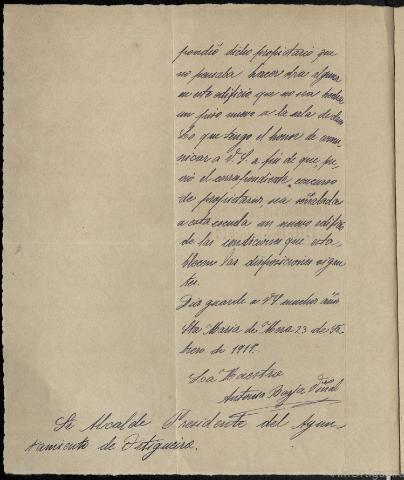 pondió dicho propietario que
no pensaba hacer obra alguna
en este edificio que no sea hechar
un piso nuevo a la sala de clase
Lo que tengo el honor de comu-
nicar a V. S. a fin de que, pre-
vio el correspondiente concurso
de propietarios, sea señalada
a esta escuela un nuevo edificio
de las condiciones que esta-
blecen las disposiciones vigen-
tes.
Dios guarde a V. S. muchos años
Sta María de Mera 23 de Fe-
brero de 1918.
La Maestra
Antonia
Sr. Alcalde Presidente del Ayun-
tamiento de Ortigueira.